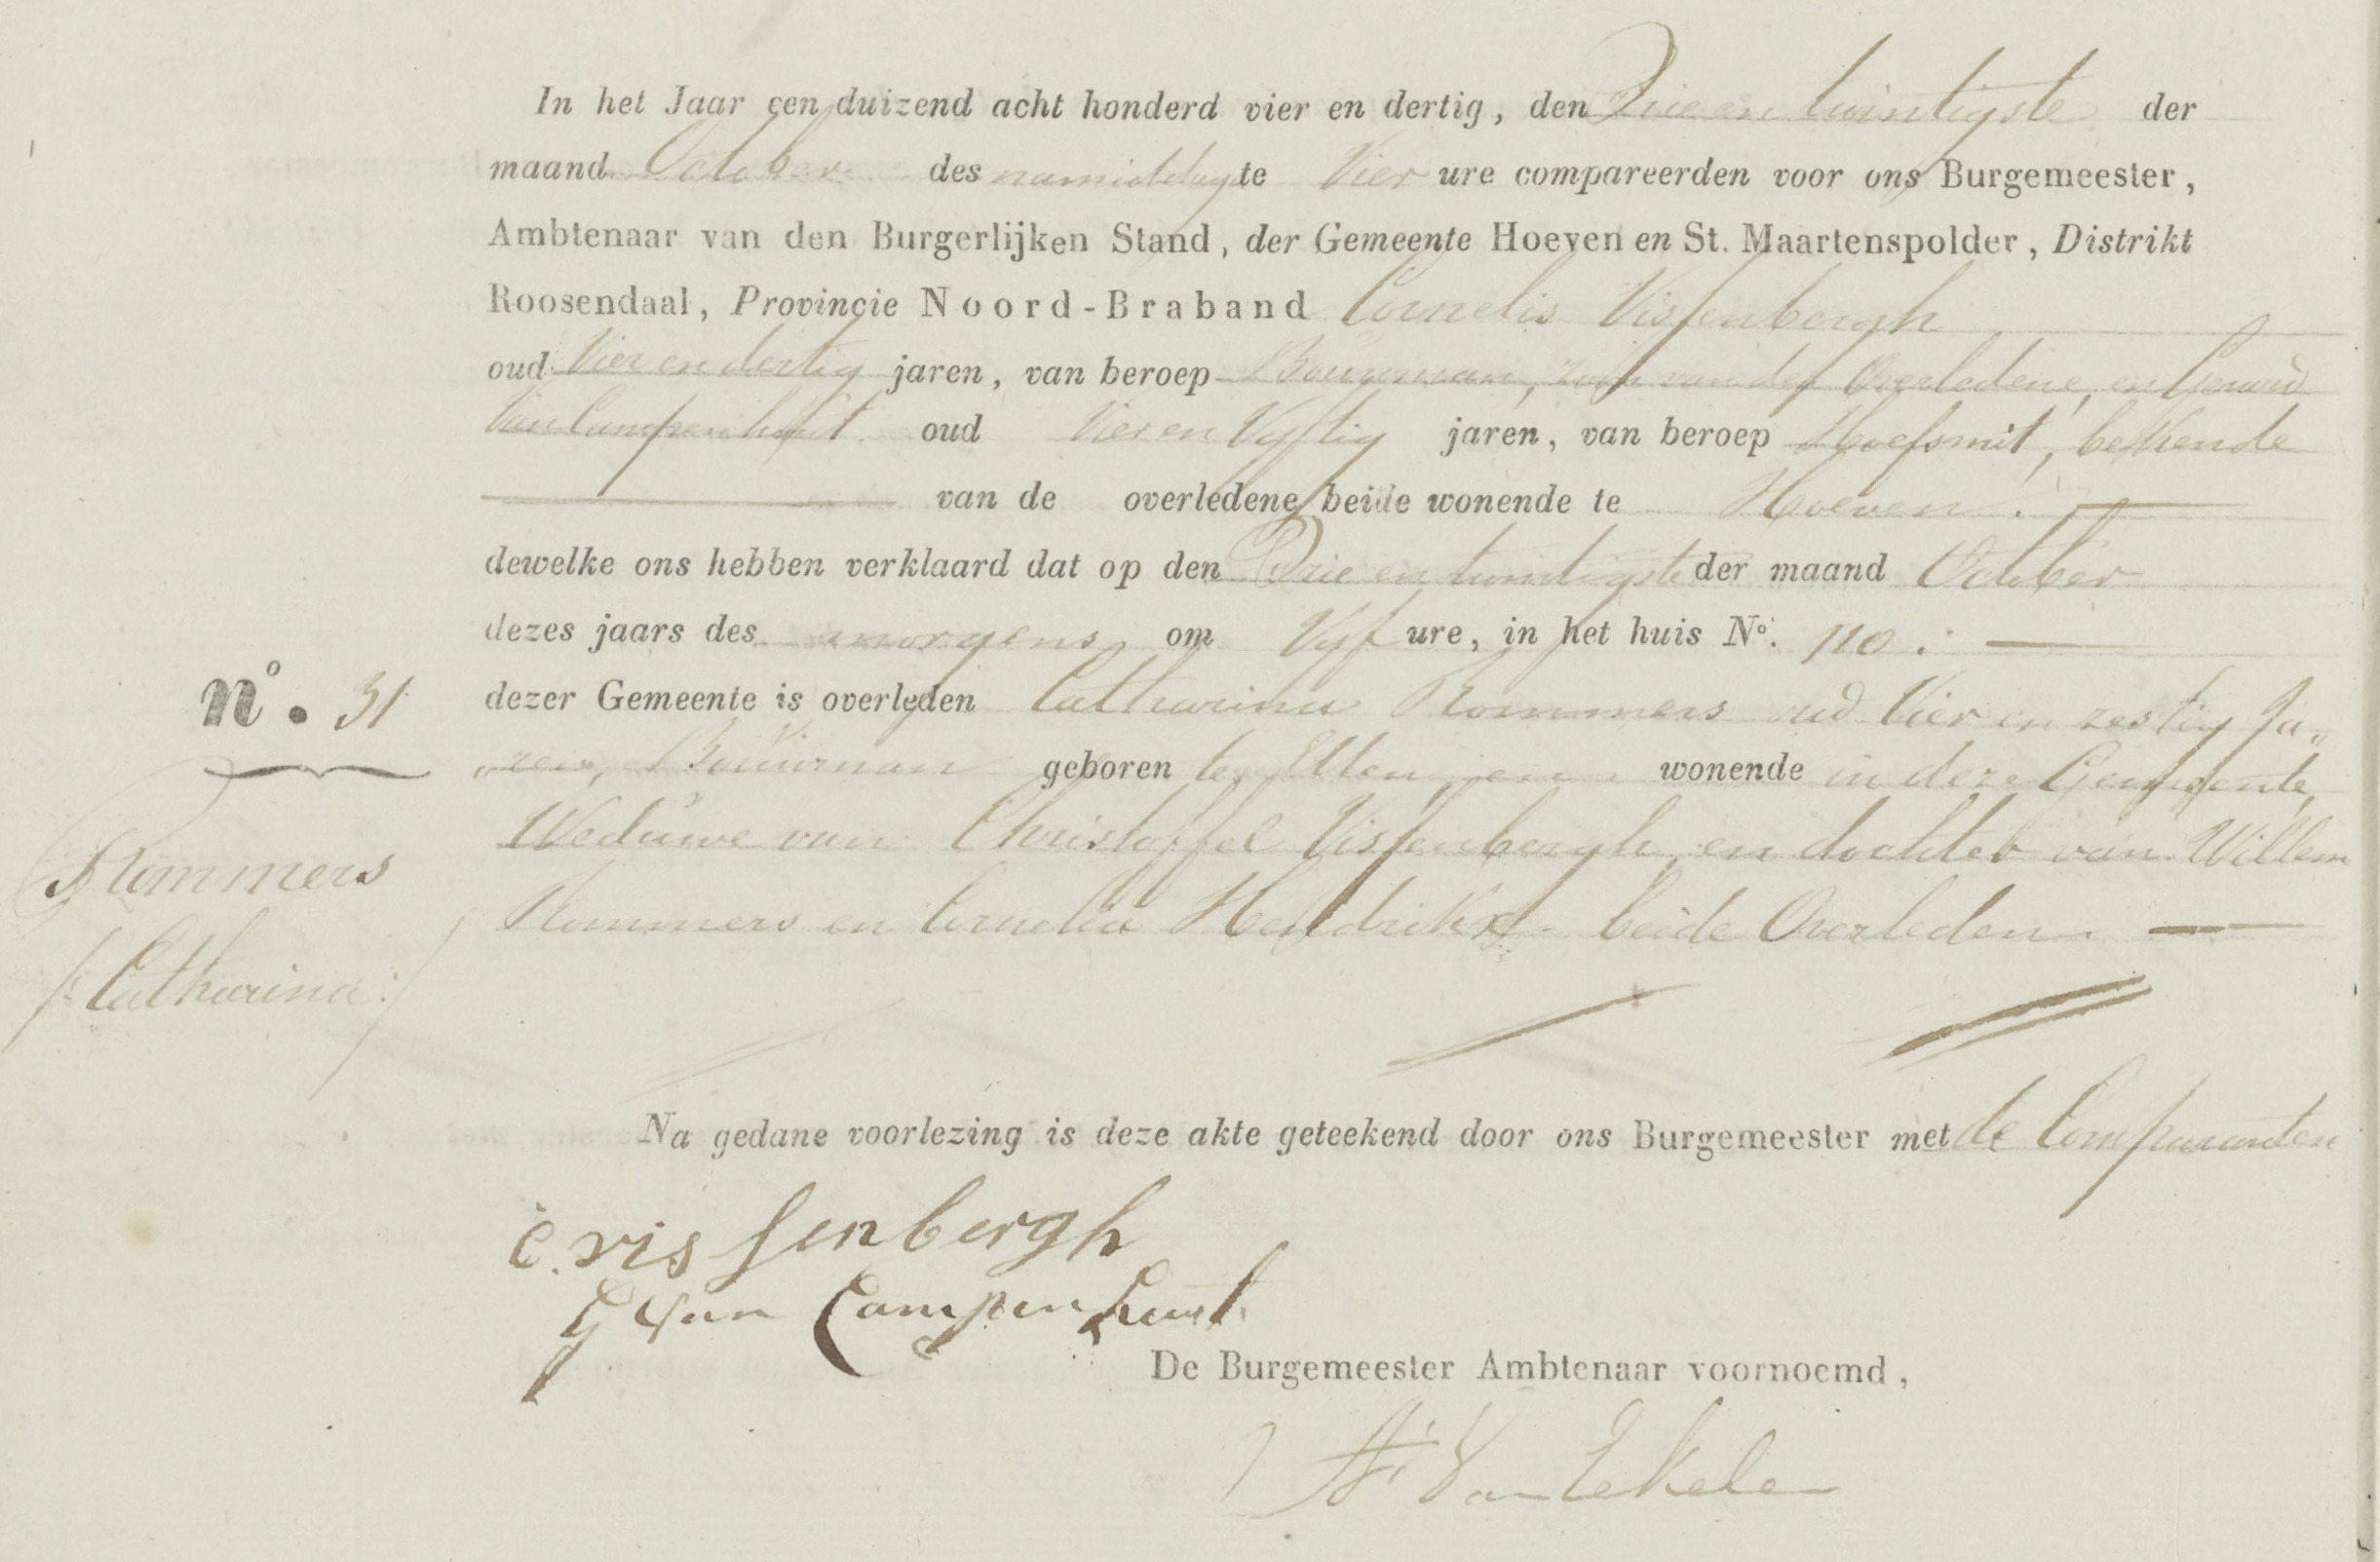 In het Jaar een duizend acht honderd vier en dertig, den Drie en twintigste der
maand October des namiddags te Vier ure compareerden voor ons Burgemeester,
Ambtenaar van den Burgerlijken Stand, der Gemeente Hoeven en St. Maartenspolder, Distrikt
Roosendaal, Provincie Noord-Braband Cornelis Vissenbergh
oud Vier en dertig jaren, van beroep Bouwman, zoon van de Overledene, en Gerard
Van Campenhout oud Vier en Vyftig jaren, van beroep Hoefsmit, bekende
van de overledene beide wonende te Hoeven.
dewelke ons hebben verklaard dat op den Drie en twintigste der maand October
dezes jaars des morgens om Vyf ure, in het huis No. 110.
dezer Gemeente is overleden Catharina Rommers oud Vier en zestig Ja„
„ren, Bouwman geboren te Etten, en wonende in deze Gemeente,
Weduwe van Christoffel Vissenbergh, en dochter van Willem
Rommers en Cornelia Hendrikx beide Overleden.
No. 31
Rommers
/:Catharina:/
Na gedane voorlezing is deze akte geteekend door ons Burgemeester met de Comparanten
C. vissenbergh
G Van Campenhout
De Burgemeester Ambtenaar voornoemd,
Van Eekelen